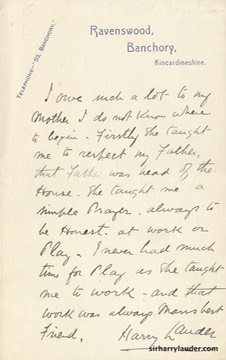 Ravenswood,
Banchory,
Kincardineshire.
TELEPHONE:-53, BANCHORY.
I owe such a lot to my
Mother I do not know where
to begin - Firstly she taught
me to respect my Father,
that Father was head of the
House. She taught me a
simple Prayer. always to
be Honest. at work or
Play - I never had much
time for Play as she taught
me to work - and that
work was always Mans best
Friend. Harry Lauder
sirharrylauder.com